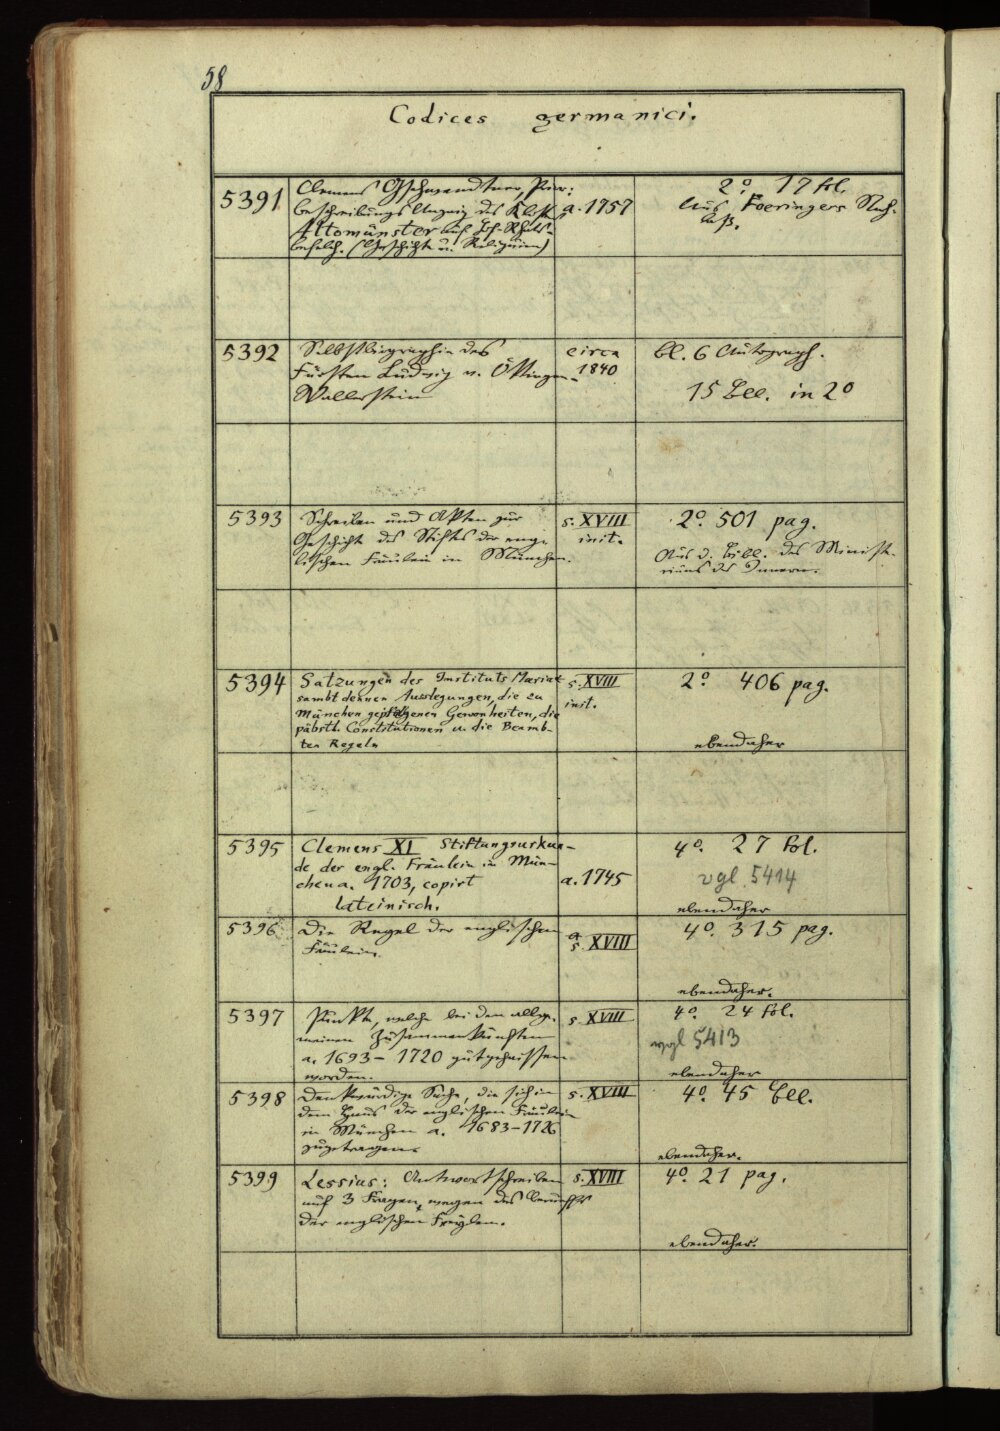 58
Codices germanici.
5391
Clemens Gschwandtner, Prior:
beschreibungs Auszug des Klosters
Altomünster auf
befelch. (Geschichte u. Reliquien)
a. 1757
2° 17 fol.
Aus Foeringers Nach-
laß.
5392
Selbstbiographie des
Fürsten Ludwig v. Öttingen-
Wallerstein
circa
1840
bl. 6 Autograph.
15 Bll. in 2°
5393
Schreiben und Akten zur
Geschichte des Stiftes der eng-
lischen Fräulein in München.
s. XVIII
init.
2° 501 pag.
Aus d. Bibl. des Ministe-
riums des Innern.
5394
Satzungen des Instituts Mariae
sambt dennen Ausslegungen, die zu
München gepflogenen Gewonheiten, die
päbstl. Constitutionen u. die Beamb-
ten Regeln
s. XVIII
init.
2° 406 pag.
ebendaher
5395
Clemens XI Stiftungsurkun-
de der engl. Fräulein in Mün-
chen a. 1703, copirt
lateinisch.
a. 1745
4° 27 fol.
vgl. 5414
ebendaher
5396
Die Regel der englischen
Fräulein.
s. XVIII
4° 315 pag.
ebendaher.
5397
Punkte, welche bei den allge-
meinen Zusammenkünften
a. 1693 – 1720 gutgeheissen
worden.
s. XVIII
4° 24 fol.
vgl 5413
ebendaher
5398
Denkwürdige Sache, die sich in
dem Haus der englischen Fräulein
in München a. 1683–1726
zugetragen.
s. XVIII
4° 45 Bll.
ebendaher.
5399
Lessius: Antwortschreiben
auf 3 Fragen, wegen des Beruffs
der englischen Freylen.
s. XVIII
4° 21 pag.
ebendaher.